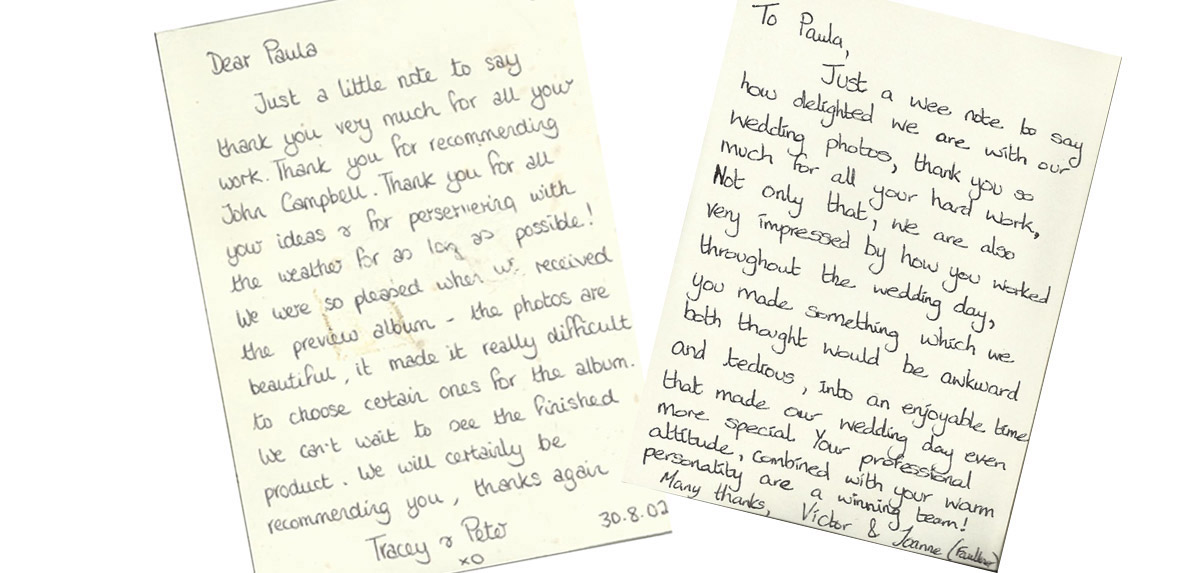 Dear Paula
Just a little note to say
thank you very much for all your
work. Thank you for recommending
John Campbell. Thank you for all
your ideas & for perservering with
the weather for as long as possible!
We were so pleased when we received
the preview album - the photos are
beautiful, it made it really difficult
to choose certain ones for the album.
We can't wait to see the finished
product. We will certainly be
recommending you, thanks again
30.8.02
Tracey & Peter
xo
To Paula,
Just a wee note to say
how delighted we are with our
wedding photos, thank you so
much for all your hard work,
Not only that, we are also
very impressed by how you worked
throughout the wedding day,
you made something which we
both thought would be awkward
and tedious, into an enjoyable time
that made our wedding day even
more special. Your professional
attitude, combined with your warm
personality are a winning team!
Many thanks, Victor & Joanne (Faulkner)